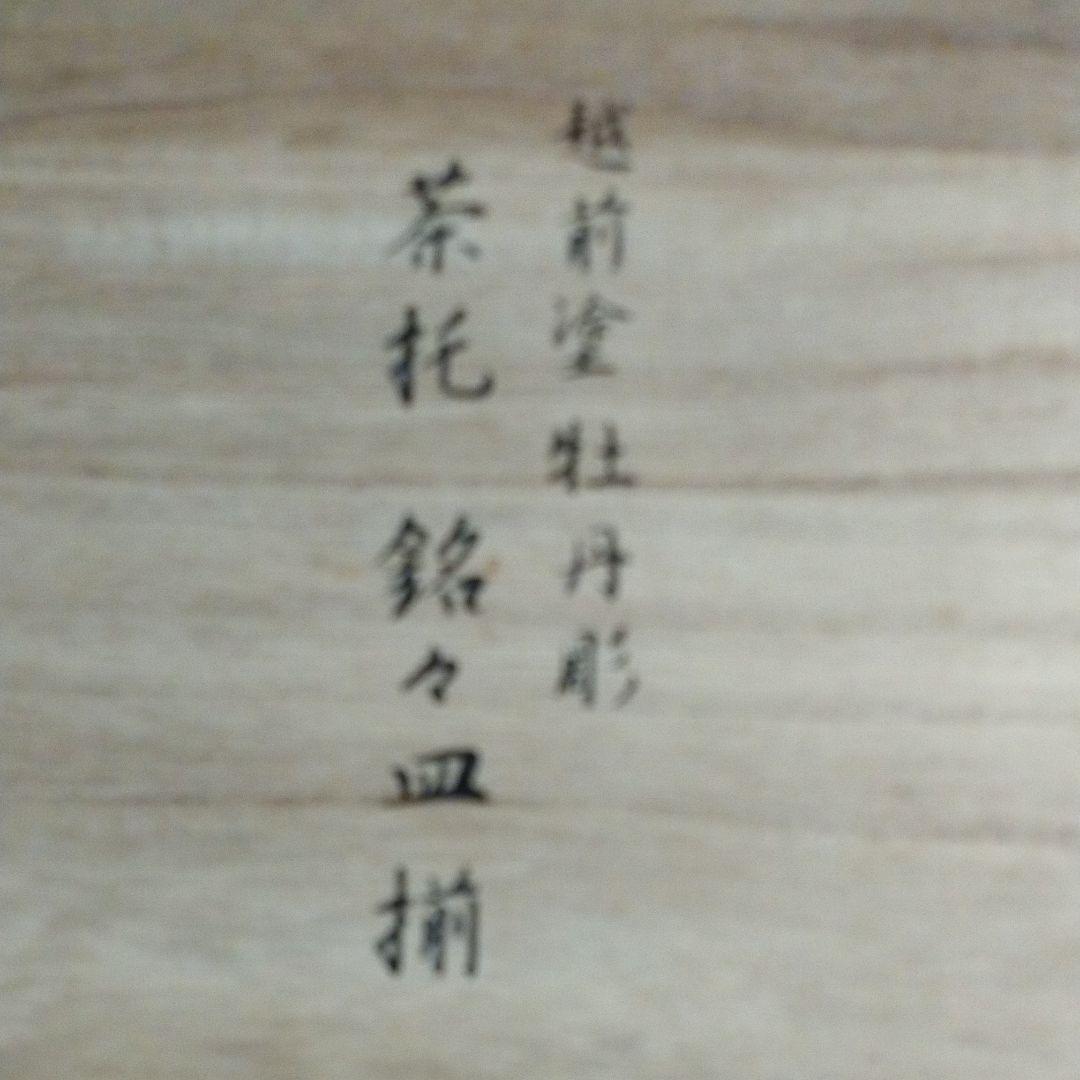 越前塗牡丹彫
茶托 銘々皿揃